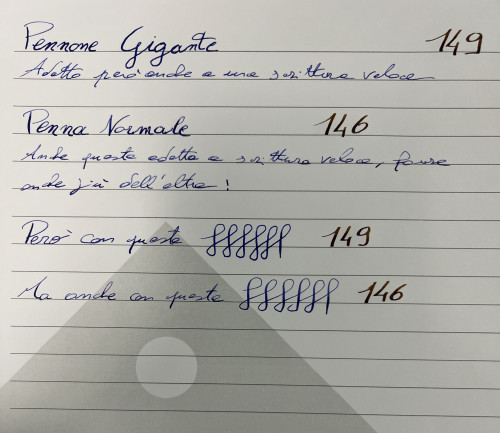 Pennone Gigante 149
Adatto però anche a una scrittura veloce
Penna Normale 146
Anche questa adatta a scrittura veloce, forse
anche più dell'altra!
Però con questa ffffff 149
Ma anche con questa ffffff 146